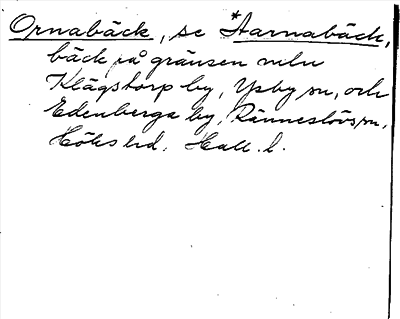 Ornabäck, se *Aarnabäck,
bäck på gränsen mln
Klägstorp by, Ysby sn, och
Edenberga by, Ränneslövs sn,
Höks hd, Hall. l.